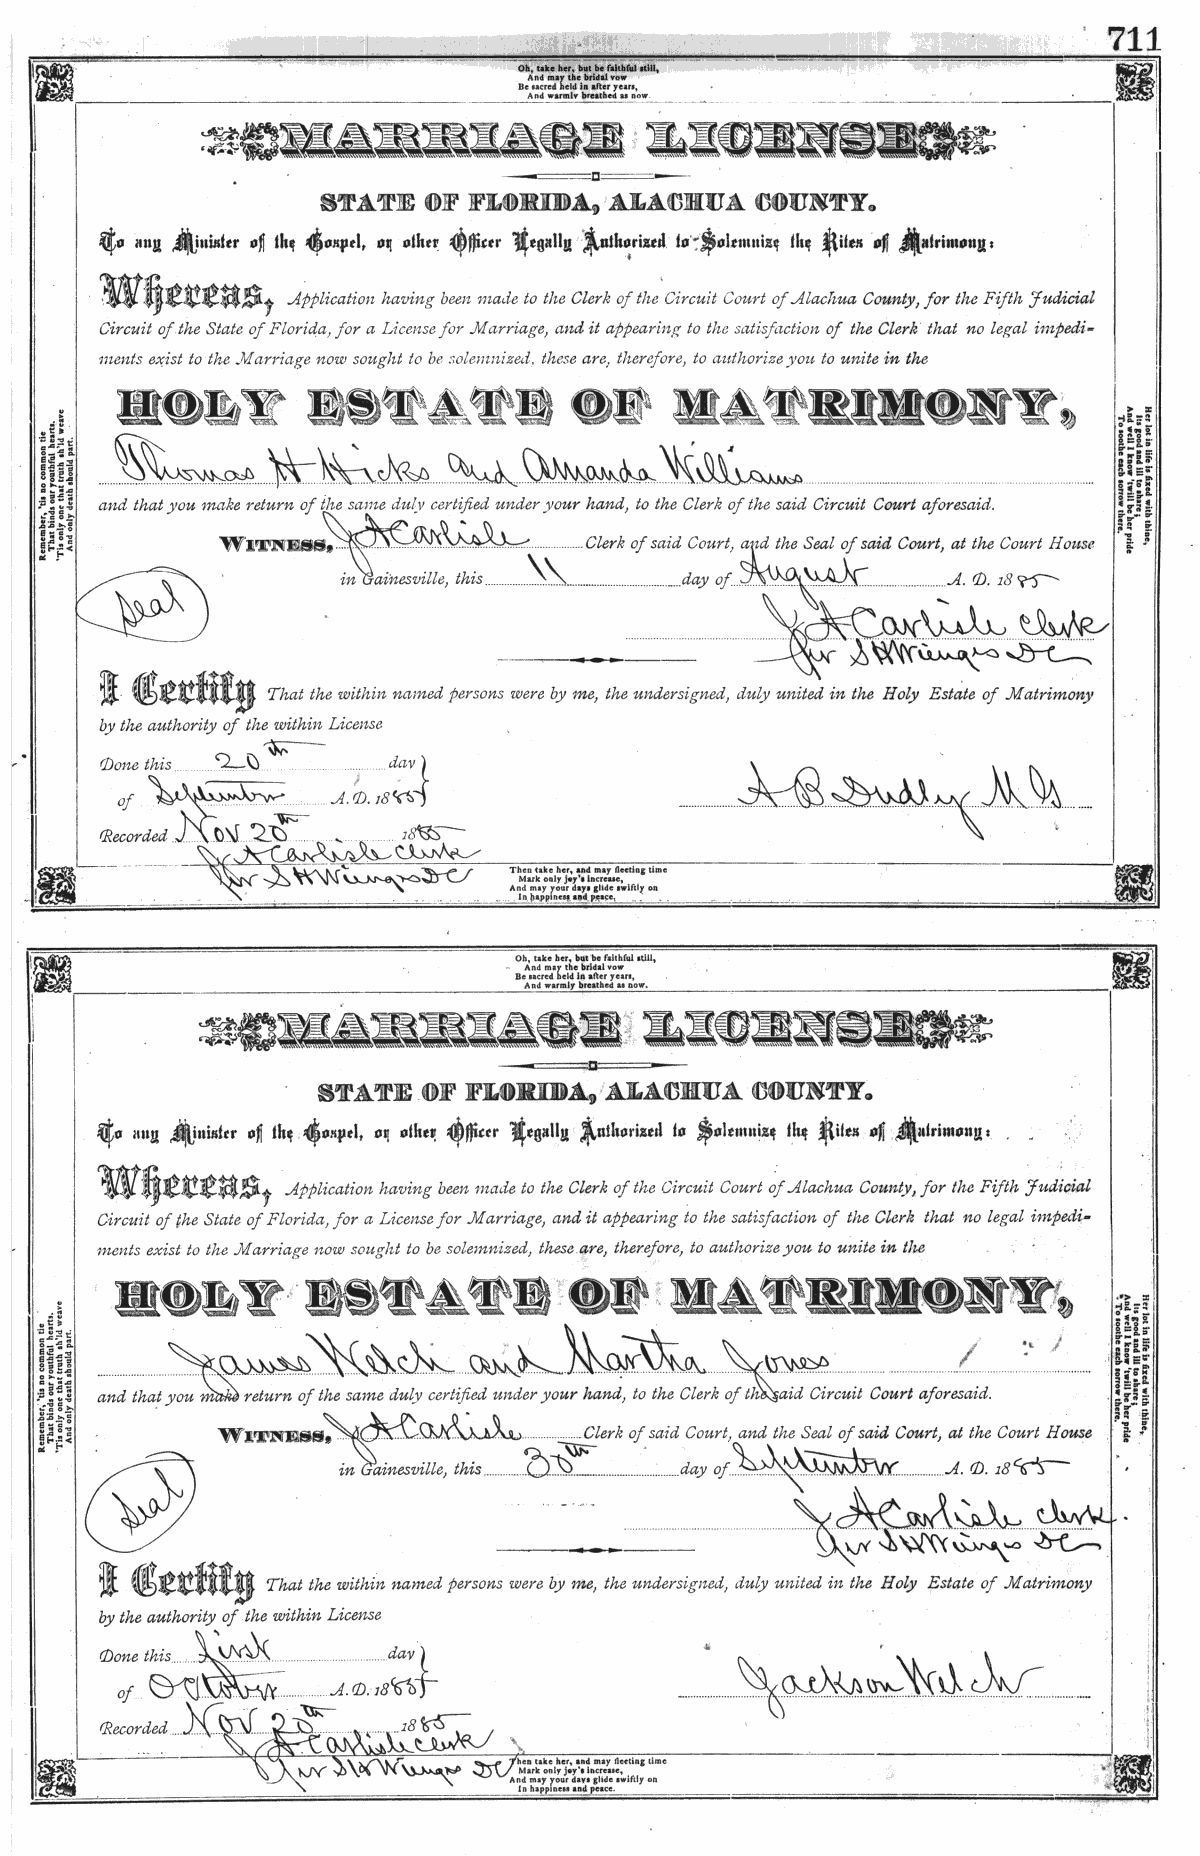 711
Oh, take her, but be faithful still,
And may the bridal vow
Be sacred held in after years,
And warmly breathed as now.
MARRIAGE LICENSE
STATE OF FLORIDA, ALACHUA COUNTY.
To any Minister of the Gospel, or other Officer Legally Authorized to Solemnize the Rites of Matrimony:
Whereas, Application having been made to the Clerk of the Circuit Court of Alachua County, for the Fifth Judicial
Circuit of the State of Florida, for a License for Marriage, and it appearing to the satisfaction of the Clerk that no legal impedi-
ments exist to the Marriage now sought to be solemnized, these are, therefore, to authorize you to unite in the
HOLY ESTATE OF MATRIMONY,
Thomas H Hicks and Amanda Williams
and that you make return of the same duly certified under your hand, to the Clerk of the said Circuit Court aforesaid.
WITNESS, J A Carlisle Clerk of said Court, and the Seal of said Court, at the Court House
in Gainesville, this 11 day of August A. D. 1885
Seal
J A Carlisle Clerk
per S H Wienges DC
I Certify That the within named persons were by me, the undersigned, duly united in the Holy Estate of Matrimony
by the authority of the within License
Done this 20th day
of September A.D. 1885
A B Dudley M G
Recorded Nov 20th 1885
J A Carlisle Clerk
per S H Wienges DC
Remember, 'tis no common tie
That binds our youthful hearts.
'Tis only one that truth sh'ld weave
And only death should part.
Her lot in life is fixed with thine,
Its good and ill to share;
And well I know 'twill be her pride
To soothe each sorrow there.
Then take her, and may fleeting time
Mark only joy's increase,
And may your days glide swiftly on
In happiness and peace.
Oh, take her, but be faithful still,
And may the bridal vow
Be sacred held in after years,
And warmly breathed as now.
MARRIAGE LICENSE
STATE OF FLORIDA, ALACHUA COUNTY.
To any Minister of the Gospel, or other Officer Legally Authorized to Solemnize the Rites of Matrimony:
Whereas, Application having been made to the Clerk of the Circuit Court of Alachua County, for the Fifth Judicial
Circuit of the State of Florida, for a License for Marriage, and it appearing to the satisfaction of the Clerk that no legal impedi-
ments exist to the Marriage now sought to be solemnized, these are, therefore, to authorize you to unite in the
HOLY ESTATE OF MATRIMONY,
James Welch and Martha Jones
and that you make return of the same duly certified under your hand, to the Clerk of the said Circuit Court aforesaid.
WITNESS, J A Carlisle Clerk of said Court, and the Seal of said Court, at the Court House
in Gainesville, this 30th day of September A. D. 1885
Seal
J A Carlisle Clerk.
per S H Wienges DC
I Certify That the within named persons were by me, the undersigned, duly united in the Holy Estate of Matrimony
by the authority of the within License
Done this first day
of October A.D. 1885
Jackson Welch
Recorded Nov 20th 1885
J A Carlisle Clerk
per S H Wienges DC
Remember, 'tis no common tie
That binds our youthful hearts.
'Tis only one that truth sh'ld weave
And only death should part.
Her lot in life is fixed with thine,
Its good and ill to share;
And well I know 'twill be her pride
To soothe each sorrow there.
Then take her, and may fleeting time
Mark only joy's increase,
And may your days glide swiftly on
In happiness and peace.